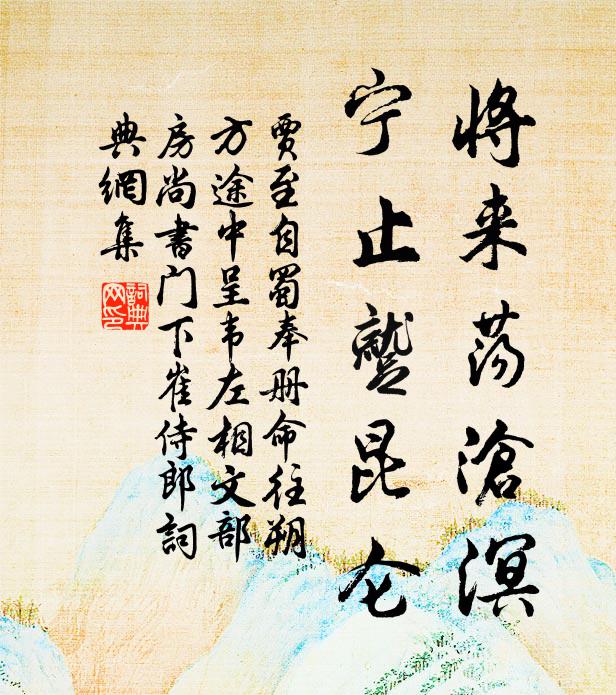 将来荡沧溟
宁止蹔昆仑
贾至自蜀奉册命往朔
方途中呈韦左相文部
房尚书门下崔侍郎詞
典網集
詞典
网印